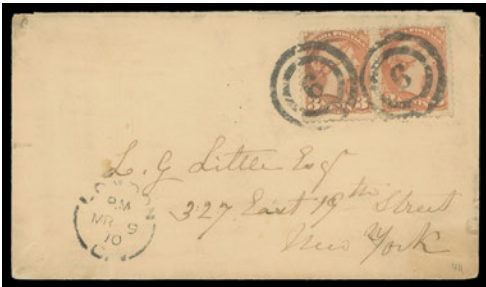 6 6
3 3
L. G Little Esqr
327 East 19th Street
New York
PM
MR 9
10